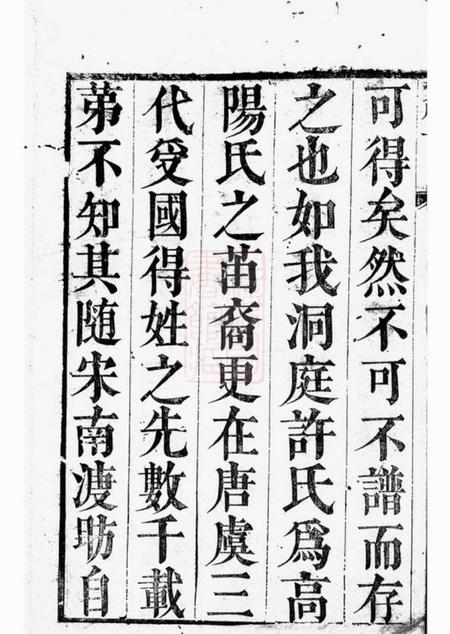 可得矣然不可不譜而存
之也如我洞庭許氏為高
陽氏之苗裔更在唐虞三
代受國得姓之先數千載
苐不知其随宋南渡昉自